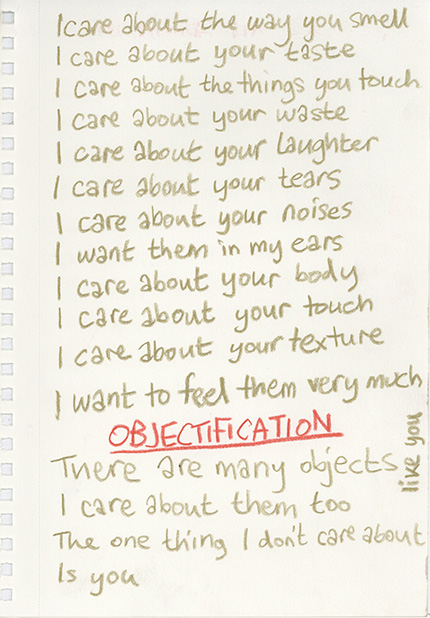 I care about the way you smell
I care about your taste
I care about the things you touch
I care about your waste
I care about your laughter
I care about your tears
I care about your noises
I want them in my ears
I care about your body
I care about your touch
I care about your texture
I want to feel them very much
OBJECTIFICATION
There are many objects
like you
I care about them too
The one thing I don't care about
Is you